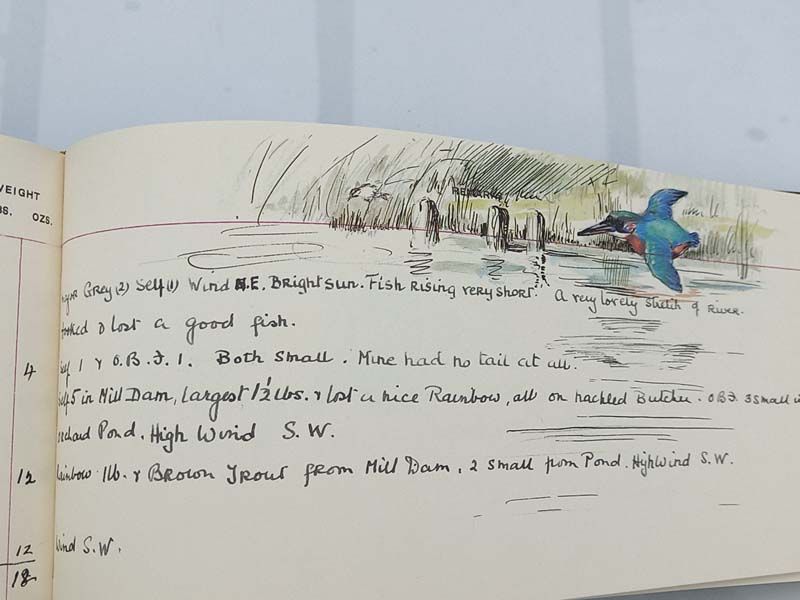 WEIGHT
OZS.
REMARKS
Grey (2) Self (1) Wind N.E. Bright sun. Fish Rising very short. A very lovely stretch of River.
& lost a good fish.
4 Self 1 & O.B.J. 1. Both small. Mine had no tail at all.
Self 5 in Mill Dam, largest 1½ lbs. & lost a nice Rainbow, all on hackled Butcher. O.B.J. 3 small
Pond. High Wind S.W.
12 Rainbow 1lb. & Brown Trout from Mill Dam. 2 small from Pond. High Wind S.W.
12 Wind S.W.
18